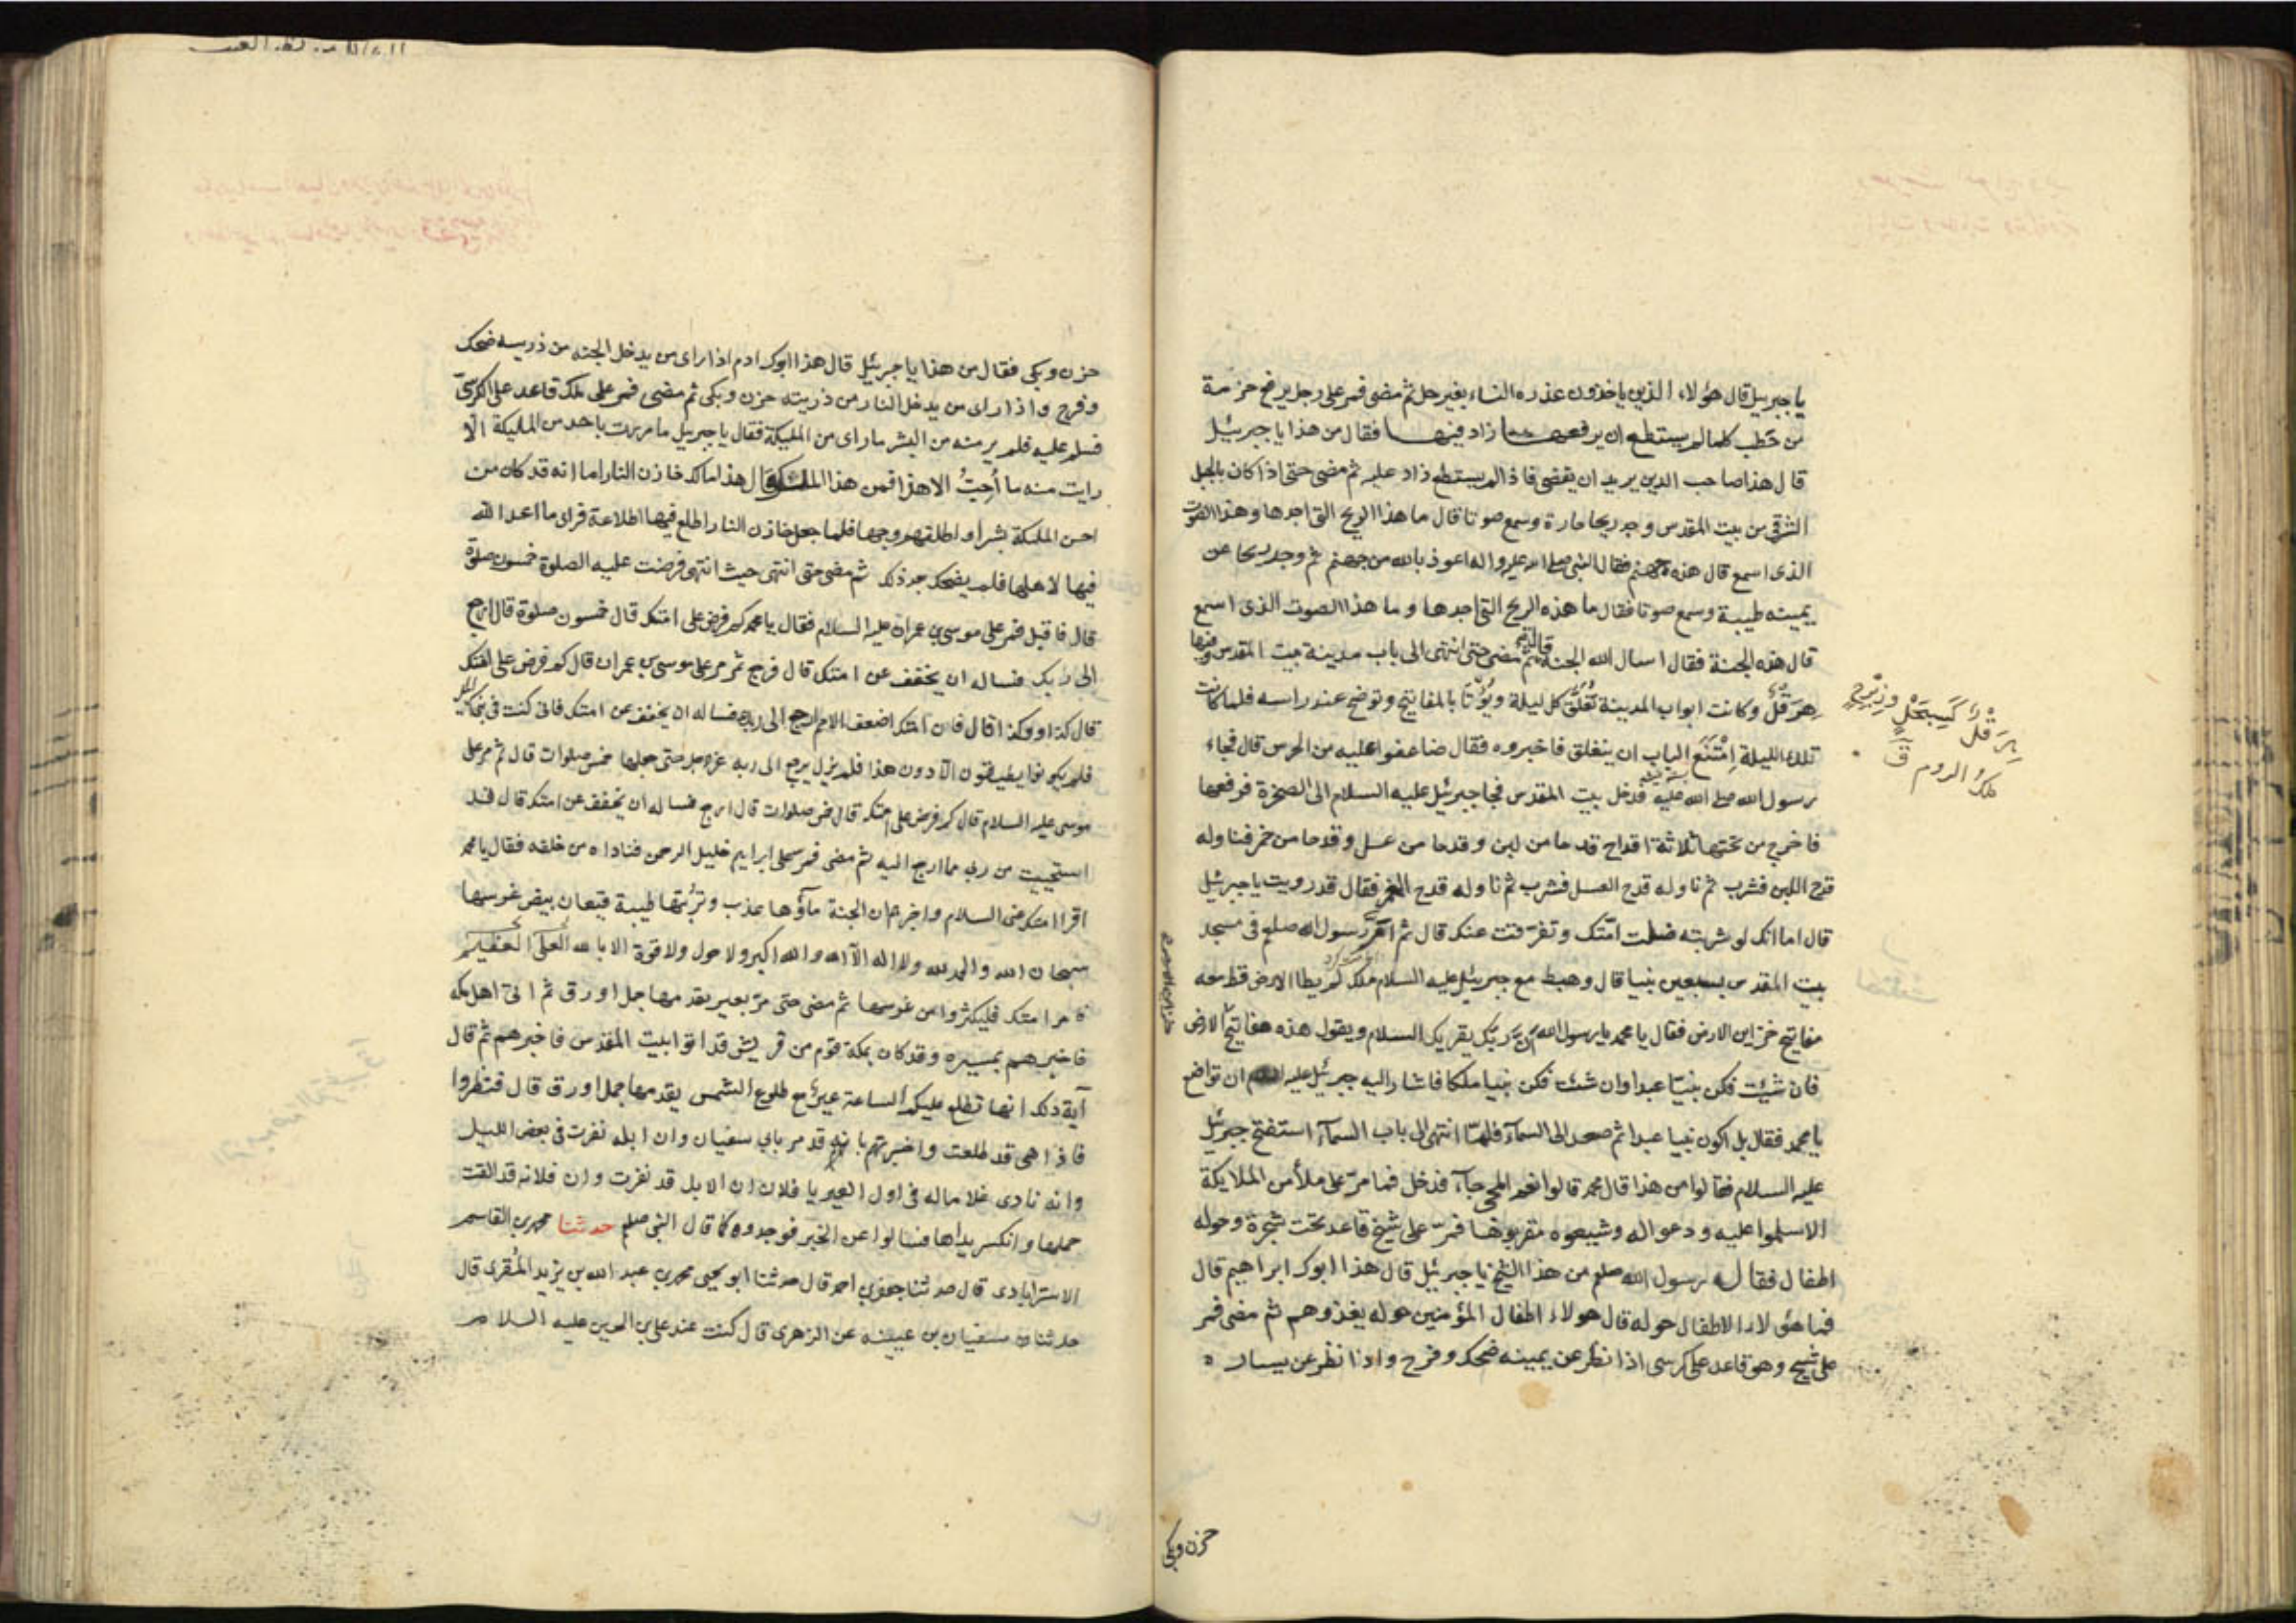 يا جبريل قال هؤلاء الذين ياخذون عذره النساء بغير حل ثم مضى فمر على رجل يرفع حزمة
من حطب كلما لم يستطع ان يرفعها زاد فيها فقال من هذا يا جبرئيل
قال هذا صاحب الدين يريد ان يقضى فاذا لم يستطع زاد عليه ثم مضى حتى اذا كان بالجبل
الشرقي من بيت المقدس وجد ريحا حارة وسمع صوتا قال ما هذا الريح التى اجدها وهذا الصوت
الذى اسمع قال هذه جهنم فقال النبى صلى الله عليه واله اعوذ بالله من جهنم ثم وجد ريحا عن
يمينه طيبة وسمع صوتا فقال ما هذه الريح التى اجدها وما هذا الصوت الذى اسمع
قال هذه الجنة فقال اسال الله الجنة قال ثم مضى حتى انتهى الى باب مدينة بيت المقدس وفيها
هِرَقْلُ وكانت ابواب المدينة تُغلَق كل ليلة ويُؤتا بالمفاتيح وتوضع عند راسه فلما كانت
تلك الليلة اِمْتَنَعَ الباب ان ينغلق فاخبروه فقال ضاعفوا عليه من الحرس قال فجاء
رسول الله صلى الله عليه فدخل بيت المقدس فجا جبرئيل عليه السلام الى الصخرة فرفعها
فاخرج من تحتها ثلاثة اقداح قدحا من لبن وقدحا من عسل وقدحا من خمر فناوله
قدح اللبن فشرب ثم ناوله قدح العسل فشرب ثم ناوله قدح الخمر فقال قد رويت يا جبرئيل
قال اما انك لو شربته ضلت امتك وتفرقت عنك قال ثم ام رسول الله صلعم فى مسجد
بيت المقدس بسبعين نبيا قال وهبط مع جبرئيل عليه السلام ملك لم يطا الارض قط معه
مفاتيح خزاين الارض فقال يا محمد يا رسول الله ان ربك يقريك السلام ويقول هذه مفاتيح الارض
فان شئت فكن نبيا عبدا وان شئت فكن نبيا ملكا فاشار اليه جبرئيل عليه السلام ان تواضع
يا محمد فقال بل اكون نبيا عبدا ثم صعد الى السمآء فلما انتهى الى باب السمآء استفتح جبرئيل
عليه السلام فقالوا من هذا قال محمد قالوا نعم المجئ جآء فدخل فما مر على ملأ من الملايكة
الا سلموا عليه ودعوا له وشيعوه مقربوها فمر على شيخ قاعد تحت شجرة وحوله
اطفال فقال له رسول الله صلعم من هذا الشيخ يا جبرئيل قال هذا ابوك ابراهيم قال
فما هؤلاء الاطفال حوله قال هولاء اطفال المؤمنين حوله يغذوهم ثم مضى فمر
على شيخ وهو قاعد على كرسى اذا نظر عن يمينه ضحك وفرح واذا نظر عن يساره
هِرَقْلُ كَسِبَحْلٍ وزِبْرِجٍ
ملك الروم ق
حزن وبكى
حزن وبكى فقال من هذا يا جبرئيل قال هذا ابوك ادم اذا راى من يدخل الجنه من ذريته ضحك
وفرح واذا راى من يدخل النار من ذريته حزن وبكى ثم مضى فمر على ملك قاعد على الكرسى
فسلم عليه فلم ير منه من البشر ما راى من المليكة فقال يا جبريل ما مررت باحد من المليكة الا
رايت منه ما أُحِبُّ الا هذا فمن هذا الملك قال هذا مالك خازن النار اما انه قد كان من
احسن المليكة بشرا واطلقهم وجها فلما جعل خازن النار اطلع فيها اطلاعة فراى ما اعد الله
فيها لاهلها فلم يضحك بعد ذلك ثم مضى حتى انتهى حيث انتهى فرضت عليه الصلوة خمسون صلوة
قال فاقبل فمر على موسى بن عمران عليه السلام فقال يا محمد كم فرض على امتك قال خمسون صلوة قال ارجع
الى ربك فساله ان يخفف عن امتك قال فرجع ثم مر على موسى بن عمران قال كم فرض على امتك
قال كذا وكذا قال فان امتك اضعف الامم ارجع الى ربك فساله ان يخفف عن امتك فانى كنت فى بنى اسرائيل
فلم يكونوا يطيقون الا دون هذا فلم يزل يرجع الى ربه عز وجل حتى جعلها خمس صلوات قال ثم مر على
موسى عليه السلام قال كم فرض على امتك قال خمس صلوات قال ارجع فساله ان يخفف عن امتك قال قد
استحييت من ربى مما ارجع اليه ثم مضى فمر على ابراهيم خليل الرحمن فناداه من خلفه فقال يا محمد
اقرا امتك منى السلام واخبرهم ان الجنة مآؤها عذب وتربتها طيبة قيعان بيض غرسها
سبحان الله والحمد لله ولا اله الا الله والله اكبر ولا حول ولا قوة الا بالله العلى العظيم
فامر امتك فليكثروا من غرسها ثم مضى حتى مر بعير يقدمها جمل اورق ثم اتى اهل مكه
فاخبرهم بمسيره وقد كان بمكة قوم من قريش قد اتوا بيت المقدس فاخبرهم ثم قال
آية ذلك انها تطلع عليكم الساعة عير مع طلوع الشمس يقدمها جمل اورق قال فنظروا
فاذا هى قد طلعت واخبرهم بانه قد مر بابى سفيان وان ابله نفرت فى بعض الليل
وانه نادى غلاما له فى اول العير يا فلان ان الابل قد نفرت وان فلانه قد القت
حملها وانكسر يداها فسالوا عن الخبر فوجدوه كما قال النبى صلعم حدثنا محمد بن القاسم
الاسترابادى قال حدثنا جعفر بن احمد قال حدثنا ابو يحيى محمد بن عبد الله بن يزيد المُقرى قال
حدثنا سفيان بن عيينه عن الزهرى قال كنت عند على بن الحسين عليه السلام